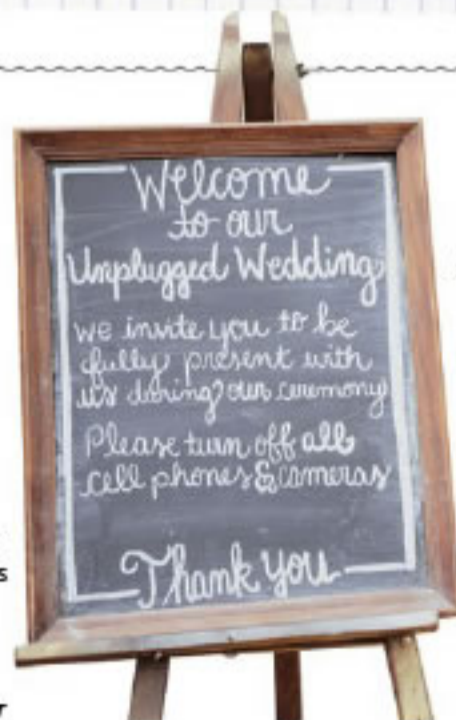 Welcome
to our
Unplugged Wedding
we invite you to be
fully present with
us during our ceremony
Please turn off all
cell phones & cameras
Thank you
s
r